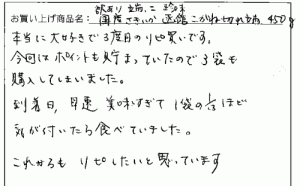 訳あり 端っこ 珍味
お買い上げ商品名: 国産さきいか 函館こがね切れ端 450g
本当に大好きで3度目のリピ買いです。
今回はポイントも貯まっていたので3袋も
購入してしまいました。
到着日、早速 美味すぎて 1袋の1/3ほど
気が付いたら食べていました。
これからも リピしたいと思っています